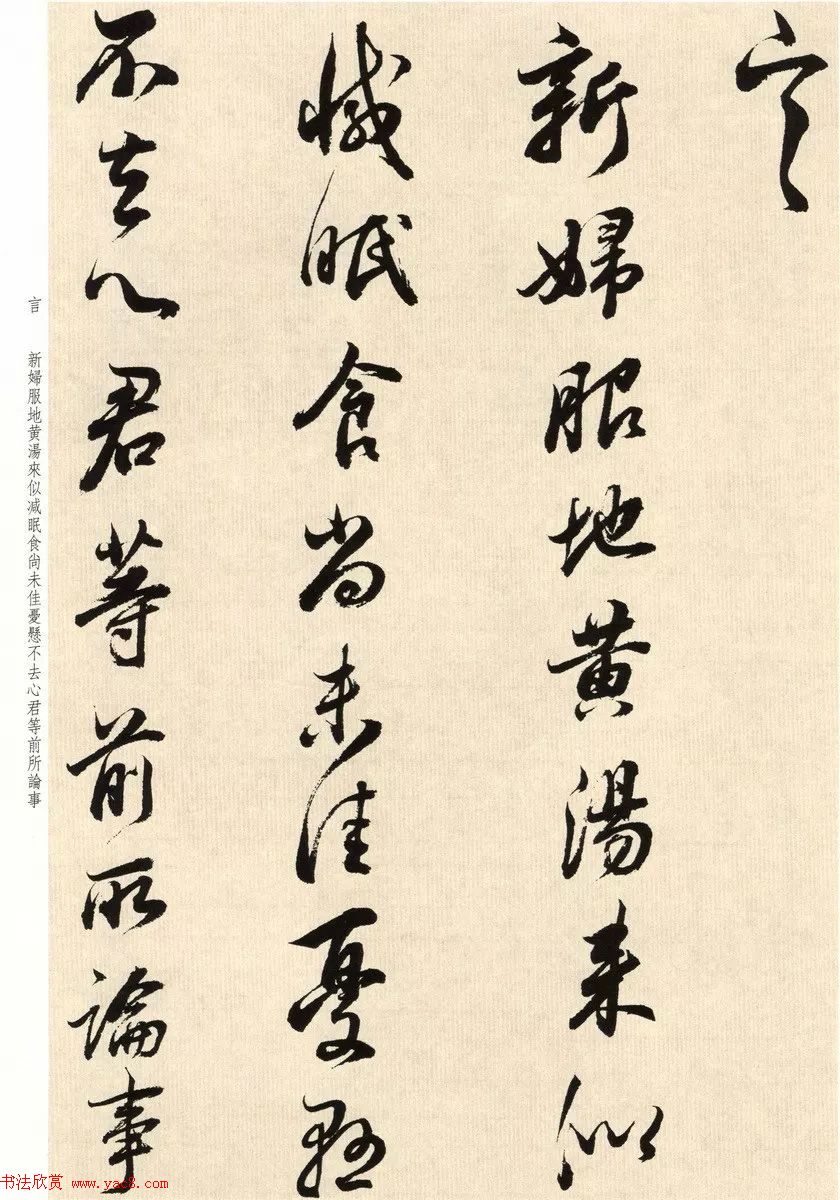 言
新婦服地黄湯来似
減眠食尚未佳憂懸
不去心君等前所論事
言　新婦服地黄湯來似减眠食尚未佳憂懸不去心君等前所論事
书法欣赏
www.yac8.com